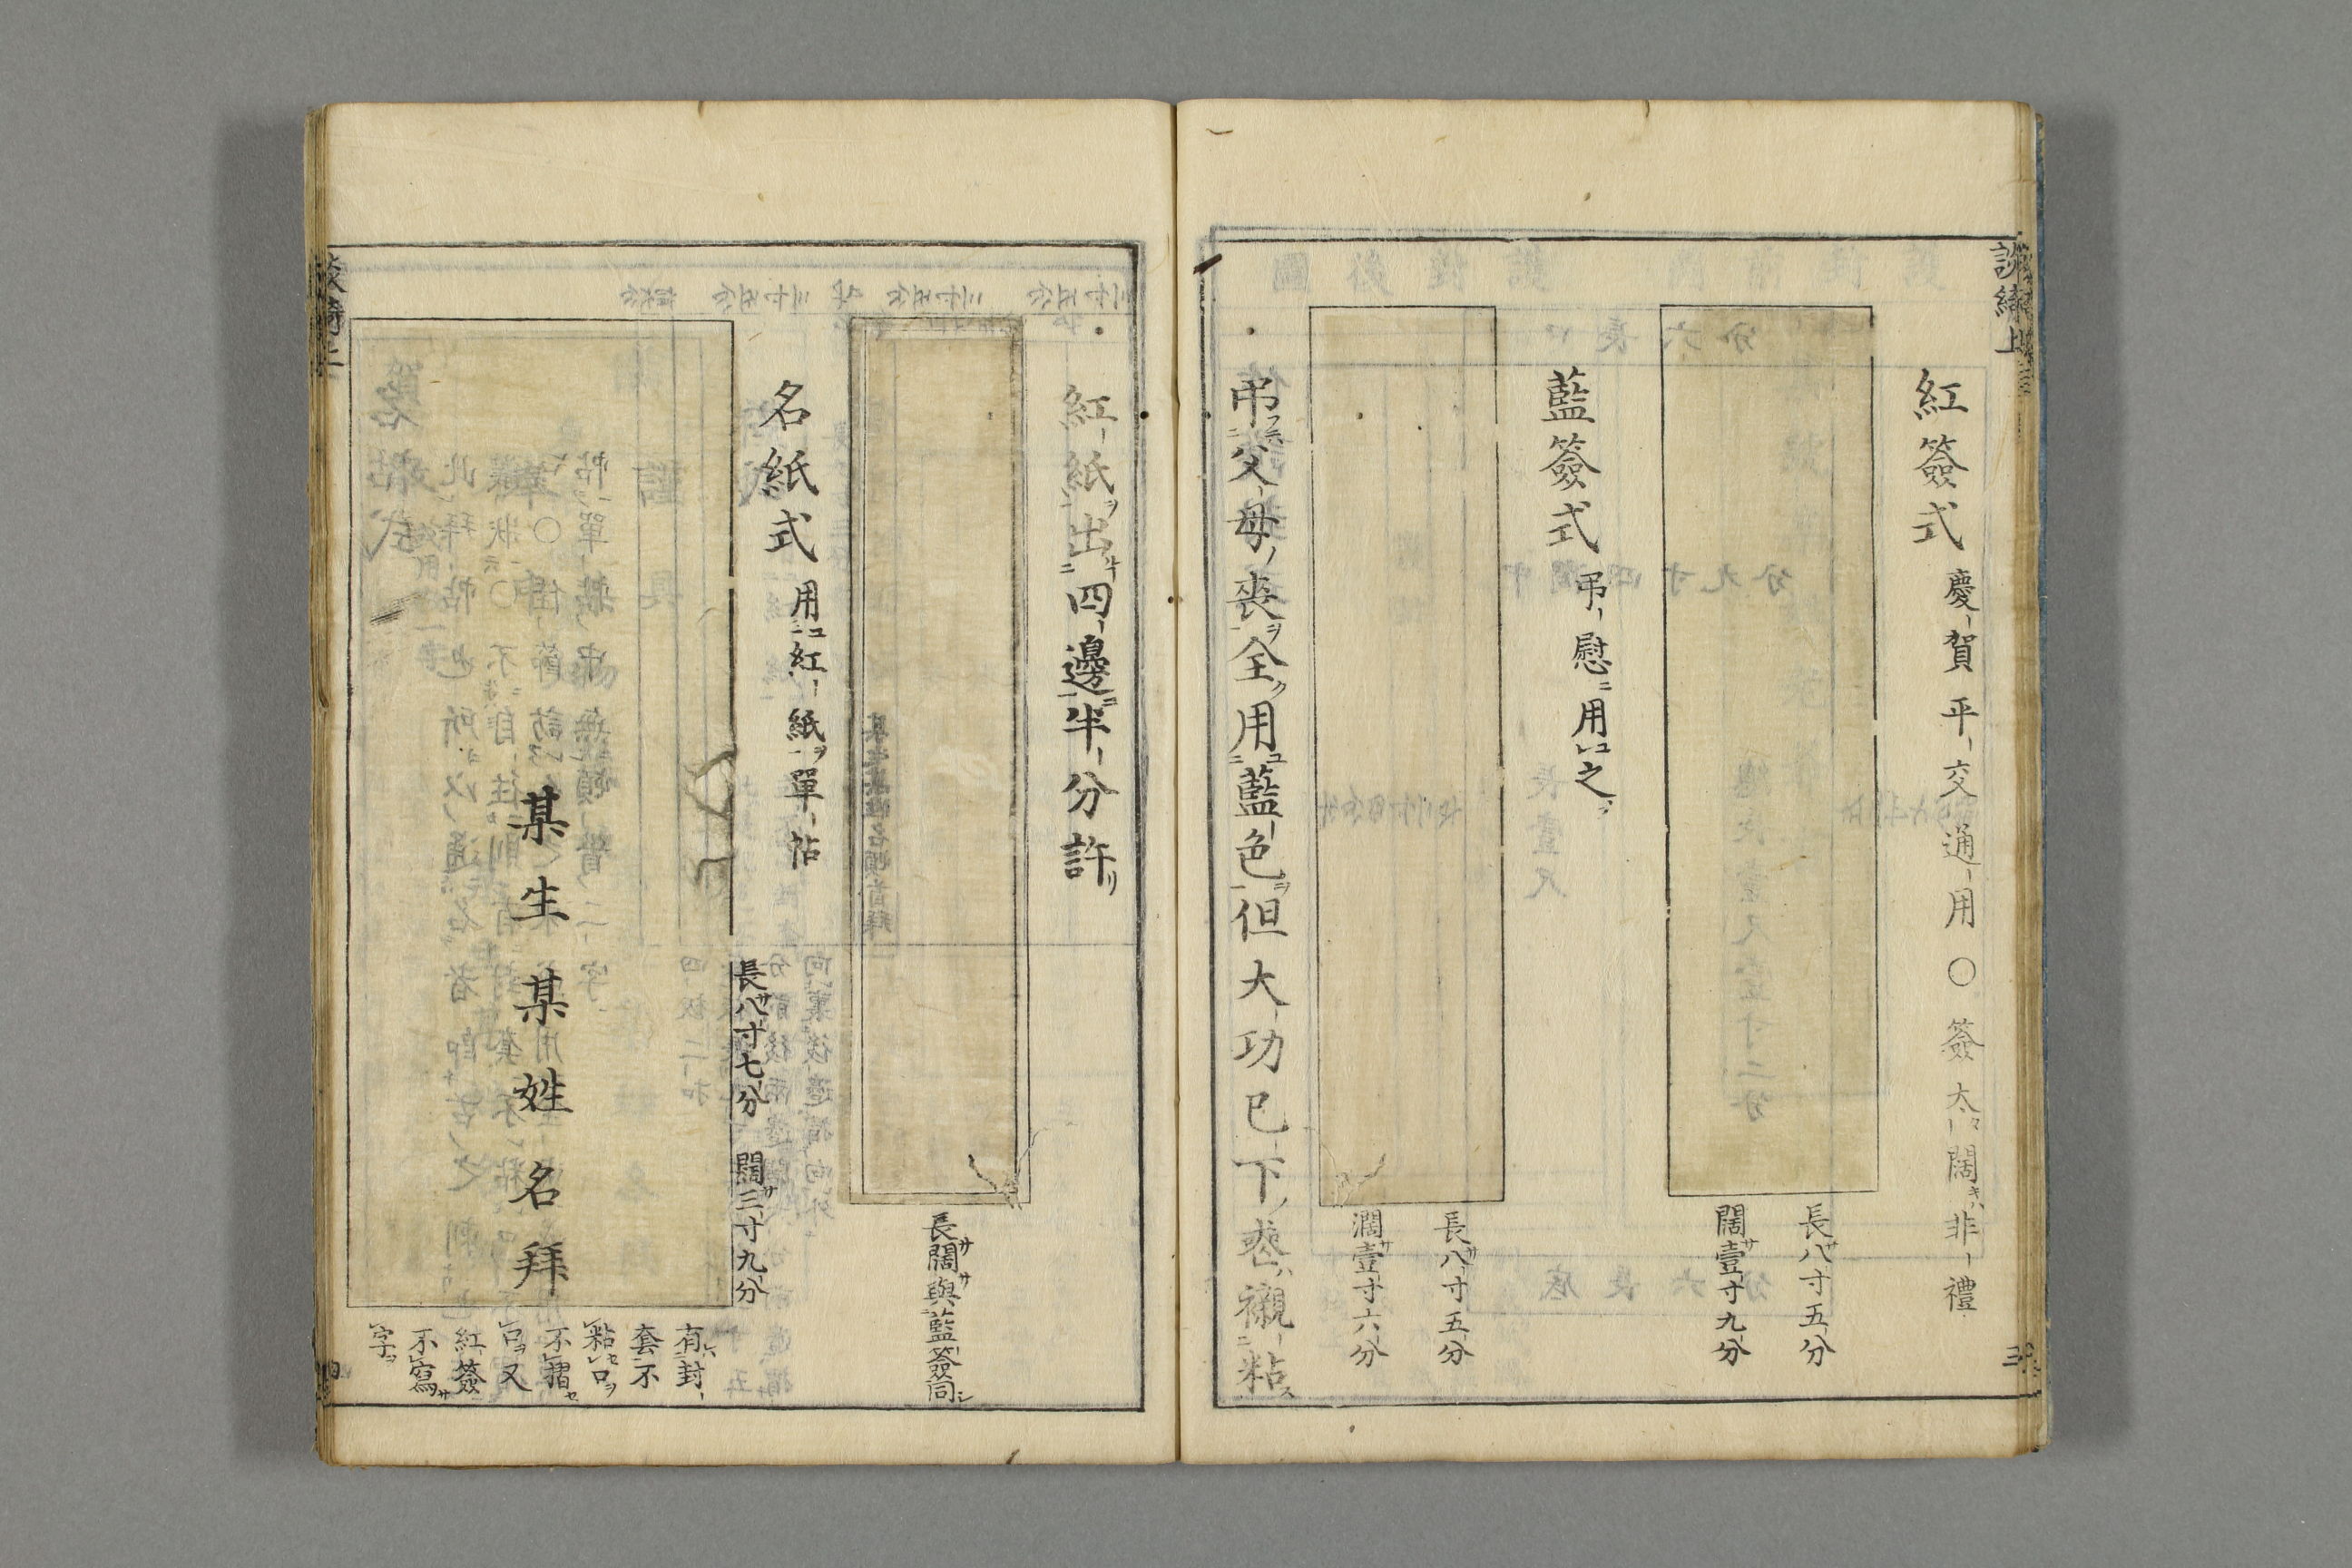 紅簽式 慶賀平交通用〇簽太闊非禮
長八寸五分
闊壹寸九分
藍簽式 弔慰用之
長八寸五分
濶壹寸六分
弔父母喪全用藍色但大功已下喪襯粘
紅紙出四邊半分許
長闊與藍簽同
名紙式 用紅紙單帖
長八寸七分 闊三寸九分
某生某姓名拜
有封
套不
粘口
不摺
口又
紅簽
不寫
字